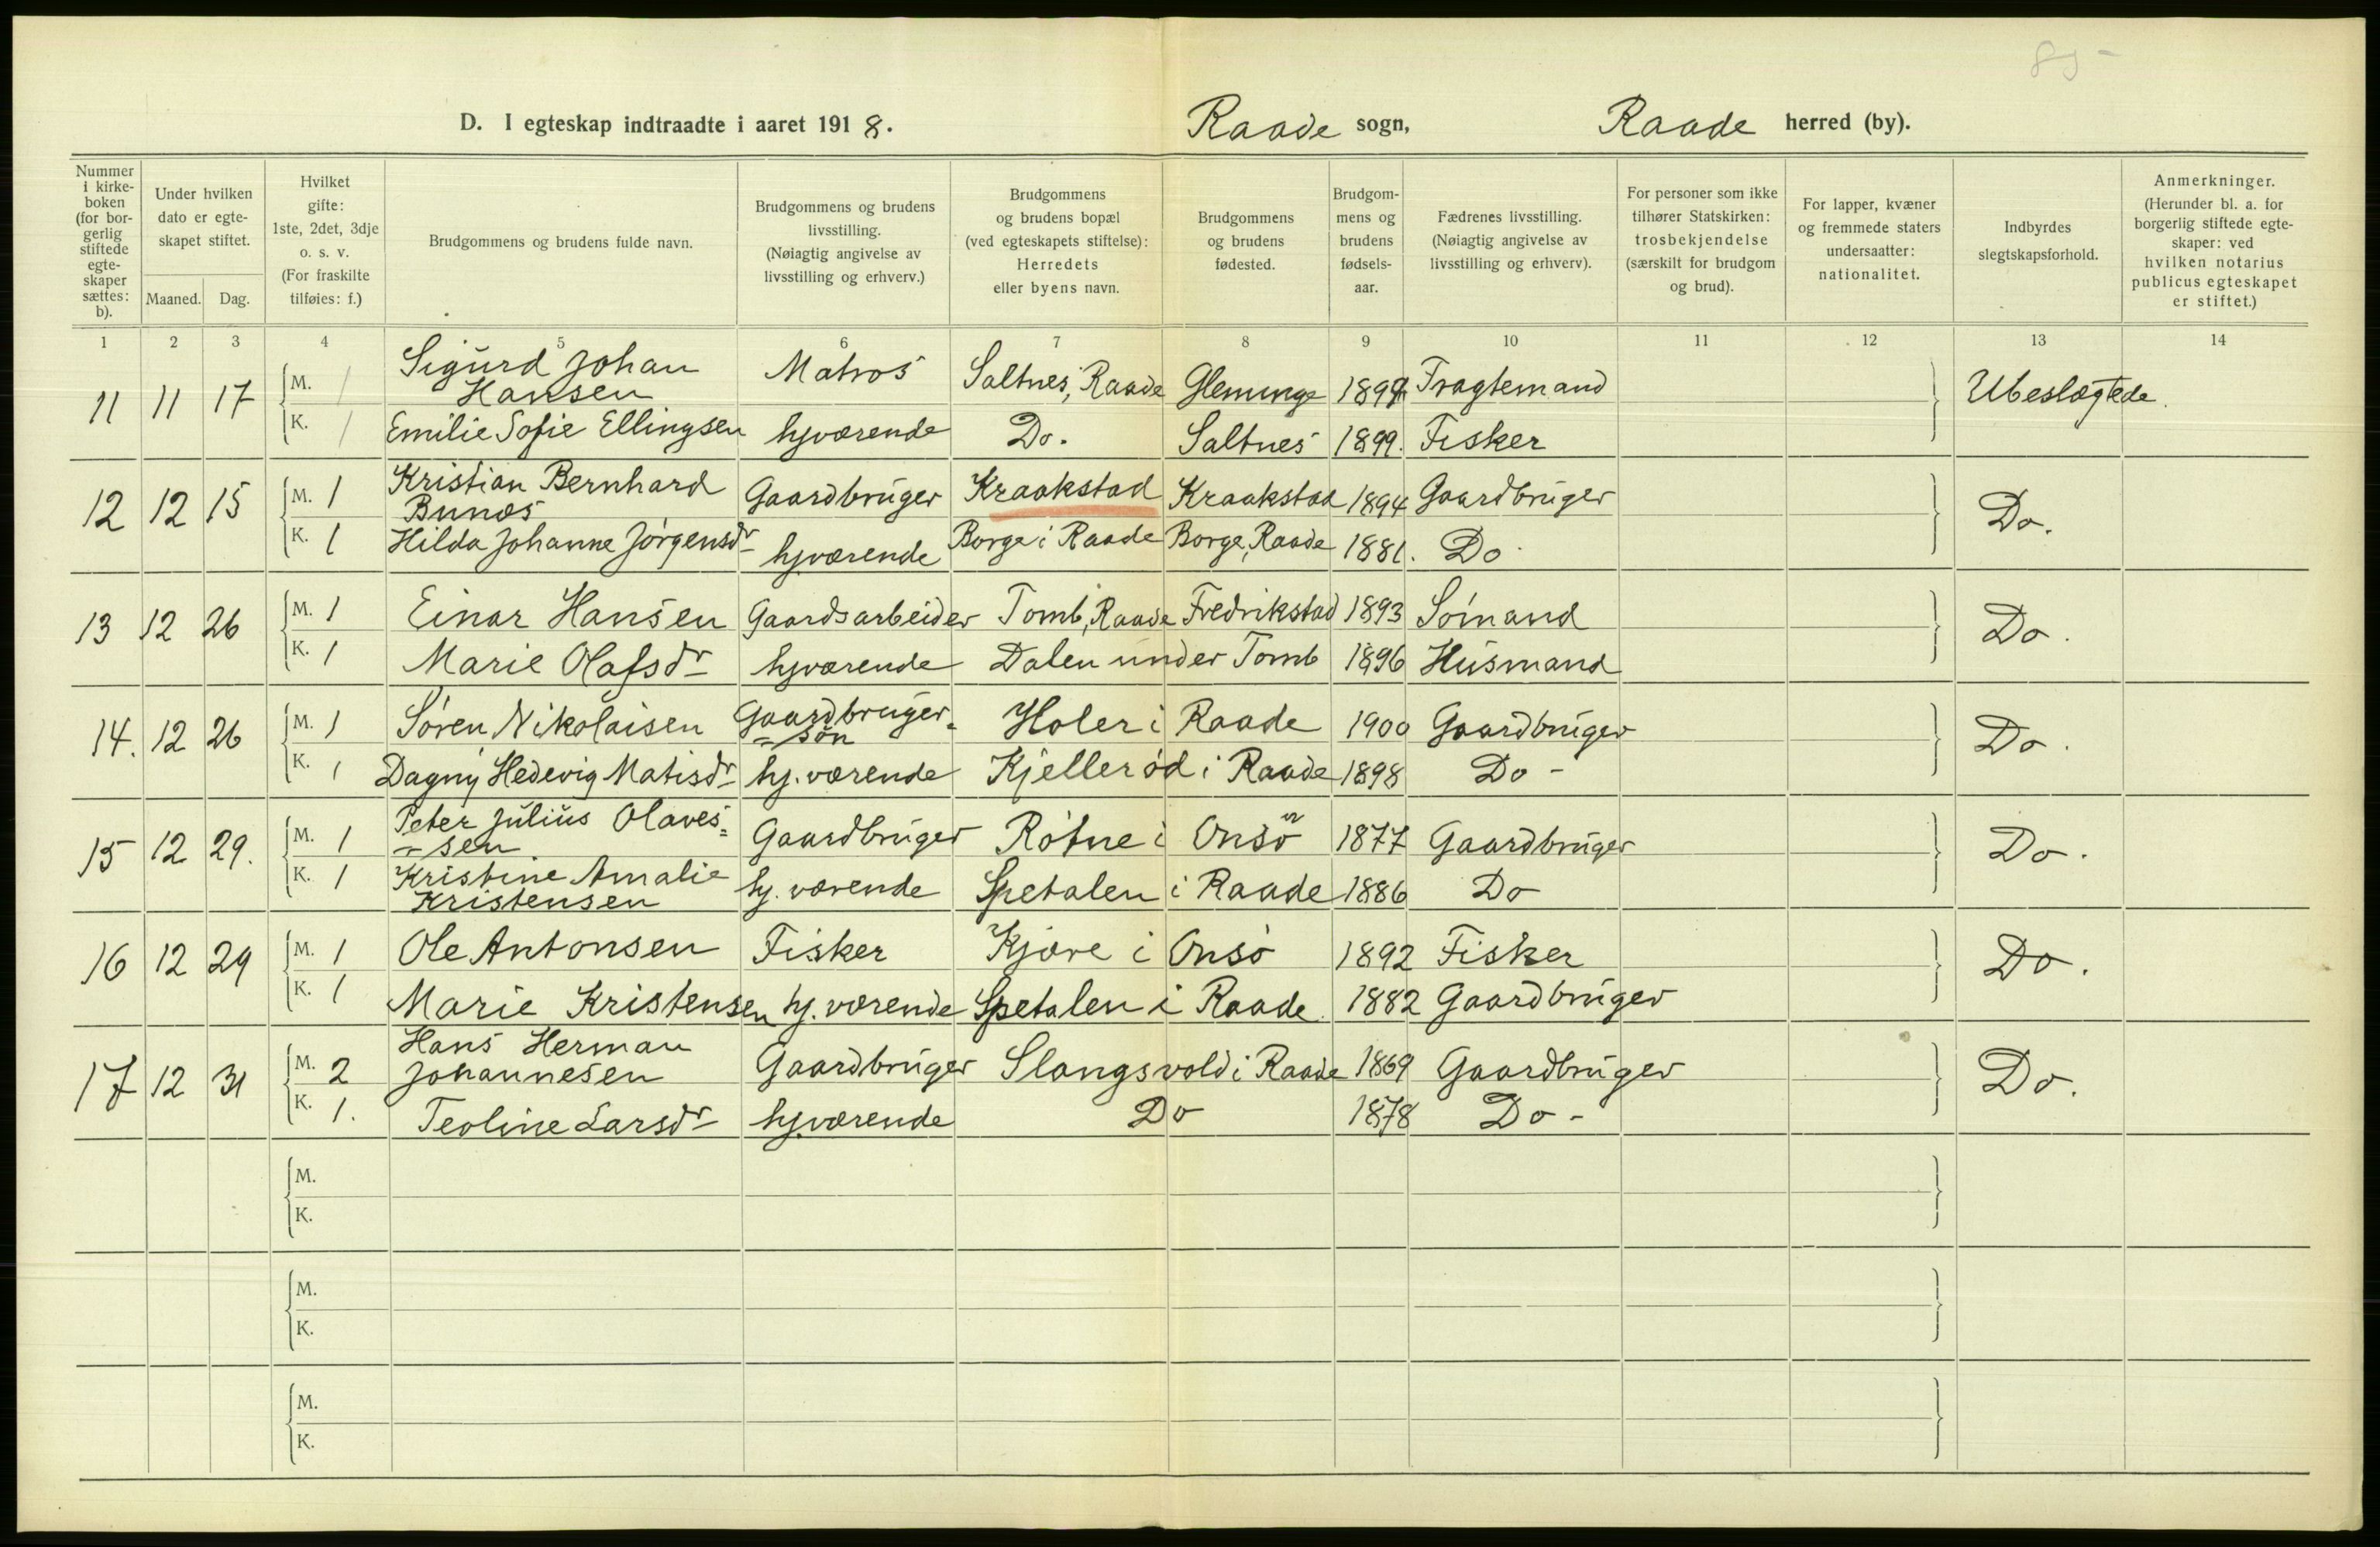 85-
D. I egteskap indtraadte i aaret 1918.
Raade sogn, Raade herred (by).
Nummer i kirke-boken (for bor-gerlig stiftede egte-skaper sættes: b).
Under hvilken dato er egte-skapet stiftet.
Maaned. Dag.
Hvilket gifte: 1ste, 2det, 3dje o. s. v. (For fraskilte tilføies: f.)
Brudgommens og brudens fulde navn.
Brudgommens og brudens livsstilling. (Nøiagtig angivelse av livsstilling og erhverv.)
Brudgommens og brudens bopæl (ved egteskapets stiftelse): Herredets eller byens navn.
Brudgommens og brudens fødested.
Brudgom-mens og brudens fødsels-aar.
Fædrenes livsstilling. (Nøiagtig angivelse av livsstilling og erhverv).
For personer som ikke tilhører Statskirken: trosbekjendelse (særskilt for brudgom og brud).
For lapper, kvæner og fremmede staters undersaatter: nationalitet.
Indbyrdes slegtskapsforhold.
Anmerkninger. (Herunder bl. a. for borgerlig stiftede egte-skaper: ved hvilken notarius publicus egteskapet er stiftet.)
1 2 3 4 5 6 7 8 9 10 11 12 13 14
11 11 17 M. 1 Sigurd Johan Hansen Matros Saltnes, Raade Glemminge Fragtemand Ubeslægtede
K. 1 Emilie Sofie Ellingsen hjværende Do. Saltnes 1899. Fisker
12 12 15 M. 1 Kristian Bernhard Bunæs Gaardbruger Kraakstad Kraakstad 1894 Gaardbruger Do.
K. 1 Hilda Johanne Jørgensdr hjværende Borge i Raade Borge, Raade 1881. Do
13 12 26 M. 1 Einar Hansen Gaardsarbeider Tomb, Raade Fredrikstad 1893 Sømand Do.
K. 1 Marie Olafsdr hjværende Dalen under Tomb 1896 Husmand
14. 12 26 M. 1 Søren Nikolaisen Gaardbruger-søn Holer i Raade 1900 Gaardbruger Do.
K. 1 Dagny Hedevig Matisdr hj. værende Kjellerød i Raade 1898 Do -
15 12 29. M. 1 Peter Julius Olaves-sen Gaardbruger Røtne i Onsø 1877 Gaardbruger Do.
K. 1 Kristine Amalie Kristensen hj. værende Spetalen i Raade 1886 Do
16 12 29 M. 1 Ole Antonsen Fisker Kjære i Onsø 1892 Fisker Do.
K. 1 Marie Kristensen hj. værende Spetalen i Raade 1882 Gaardbruger
17 12 31 M. 2 Hans Herman Johannesen Gaardbruger Slangsvold i Raade 1869 Gaardbruger Do.
K. 1. Teoline Larsdr hjværende Do 1878 Do -
M.
K.
M.
K.
M.
K.